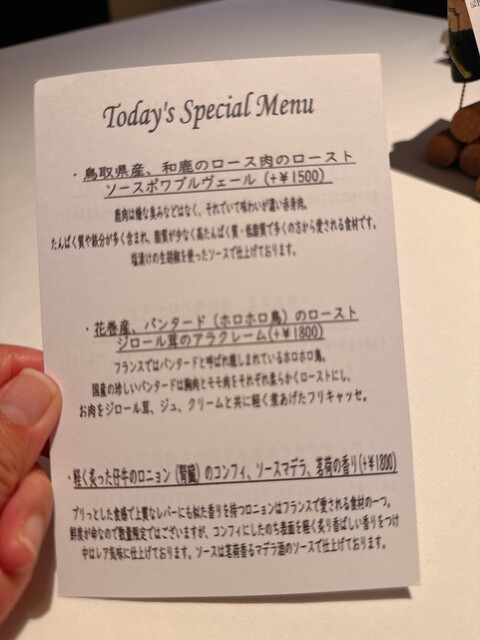 Today's Special Menu
・鳥取県産、和鹿のロース肉のロースト
ソースポワブルヴェール (+￥1500)
鹿肉は嫌な臭みなどはなく、それでいて味わいが濃い赤身肉。
たんぱく質や鉄分が多く含まれ、脂質が少なく高たんぱく質・低脂質で多くの方から愛される食材です。
塩漬けの生胡椒を使ったソースで仕上げております。
・花巻産、パンタード（ホロホロ鳥）のロースト
ジロール茸のアラクレーム(+￥1800)
フランスではパンタードと呼ばれ親しまれているホロホロ鳥。
国産の珍しいパンタードは胸肉とモモ肉をそれぞれ柔らかくローストにし、
お肉をジロール茸、ジュ、クリームと共に軽く煮あげたフリキャッセ。
・軽く炙った仔牛のロニョン（腎臓）のコンフィ、ソースマデラ、茗荷の香り(+￥1800)
プリっとした食感で上質なレバーにも似た香りを持つロニョンはフランスで愛される食材の一つ。
鮮度が命なので数量限定ではございますが、コンフィにしたのち表面を軽く炙り香ばしい香りをつけ
中はレア気味に仕上げております。ソースは茗荷香るマデラ酒のソースで仕上げております。